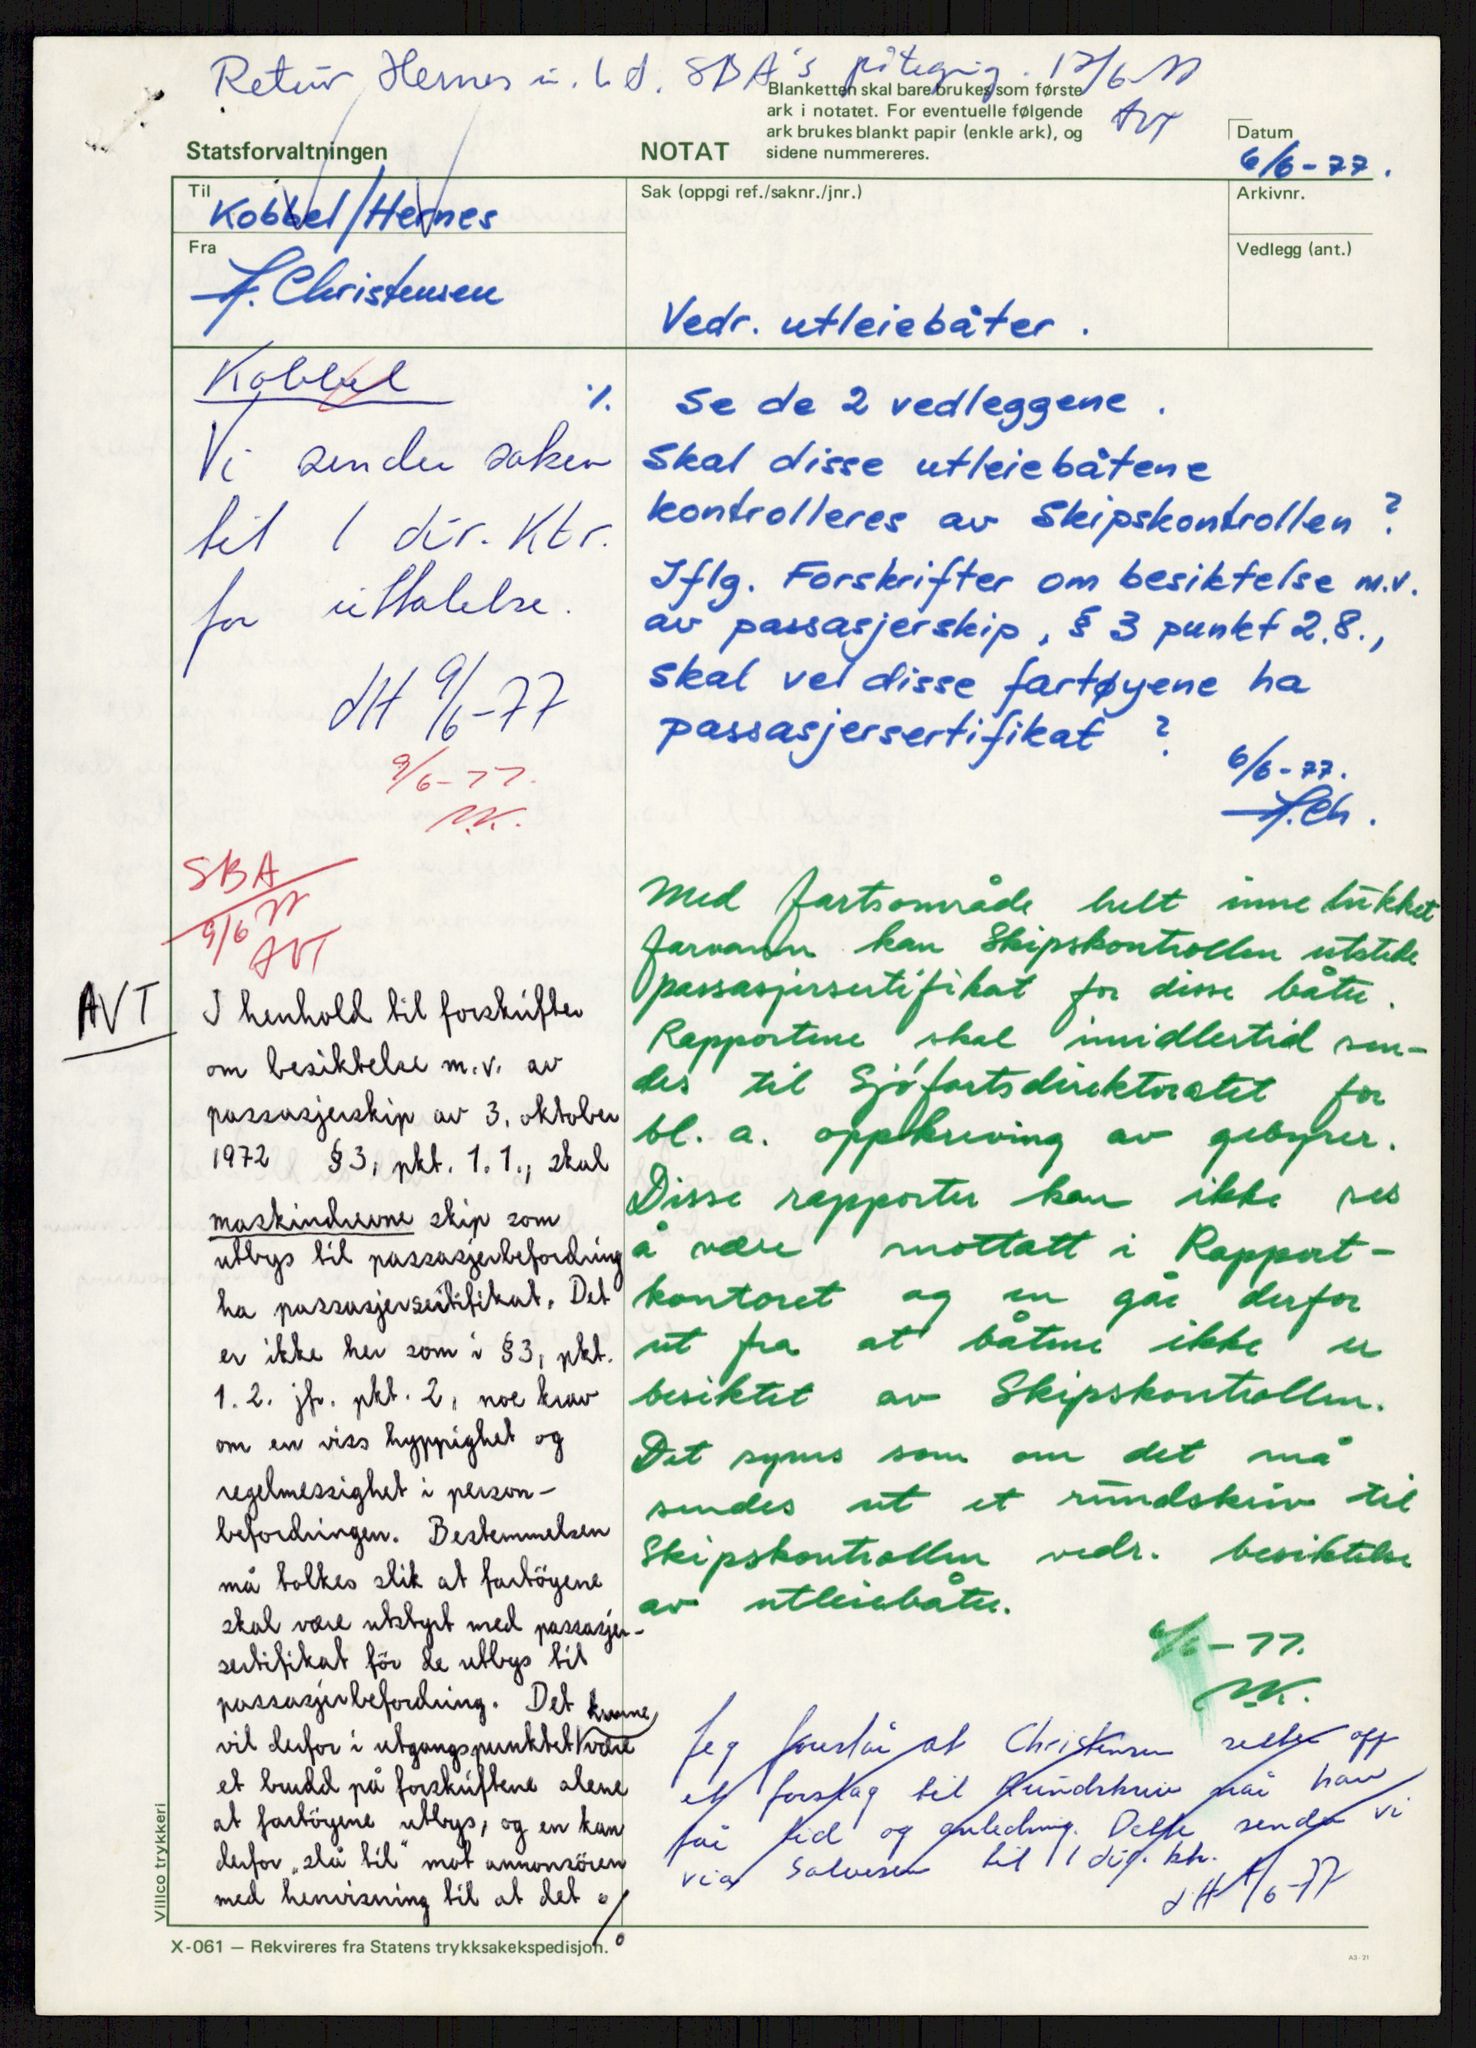 Retur Hernes m. h. t. SBA's påtegning. 17/6-77
AVT
Blanketten skal bare brukes som første
ark i notatet. For eventuelle følgende
ark brukes blankt papir (enkle ark), og
sidene nummereres.
Statsforvaltningen
NOTAT
Datum
6/6-77.
Til
Kobbel/Hernes
Sak (oppgi ref./saknr./jnr.)
Arkivnr.
Fra
Vedlegg (ant.)
F. Christensen
Vedr. utleiebåter.
Kobbel
Vi sender saken
til 1 dir. Ktr.
for uttalelse.
dH 9/6-77
9/6-77.
N.K.
SBA
9/6 77
AVT
AVT
I henhold til forskrifter
om besiktelse m.v. av
passasjerskip av 3. oktober
1972 §3, pkt. 1.1., skal
maskindrevne skip som
utbys til passasjerbefordring
ha passasjersertifikat. Det
er ikke her som i §3, pkt.
1.2. jfr. pkt. 2, noe krav
om en viss hyppighet og
regelmessighet i person-
befordringen. Bestemmelsen
må tolkes slik at fartöyene
skal være utstyrt med passasjer-
sertifikat för de utbys til
passasjerbefordring. Det kunne
vil derfor i utgangspunktet være
et brudd på forskriftene alene
at fartöyene utbys, og en kan
derfor „slå til" mot annonsören
med henvisning til at det ./.
./. Se de 2 vedleggene.
Skal disse utleiebåtene
kontrolleres av Skipskontrollen?
Iflg. Forskrifter om besiktelse m.v.
av passasjerskip, § 3 punkt 2.8.,
skal vel disse fartøyene ha
passasjersertifikat?
6/6-77.
F.Ch.
Med fartsområde helt innelukket
farvann kan Skipskontrollen utstede
passasjersertifikat for disse båter.
Rapportene skal imidlertid sen-
des til Sjöfartsdirektoratet for
bl. a. oppkreving av gebyrer.
Disse rapporter kan ikke ses
å være mottatt i Rapport-
kontoret og en går derfor
ut fra at båtene ikke er
besiktet av Skipskontrollen.
Det synes som om det må
sendes ut et rundskriv til
Skipskontrollen vedr. besiktelse
av utleiebåter.
6/6-77.
N.K.
Jeg foreslår at Christensen setter opp
et forslag til Rundskriv når han
får tid og anledning. Dette sender vi
via Salvesen til 1 dir. ktr.
dH /6-77
Villco trykkeri
X-061 — Rekvireres fra Statens trykksakekspedisjon.
A3-21